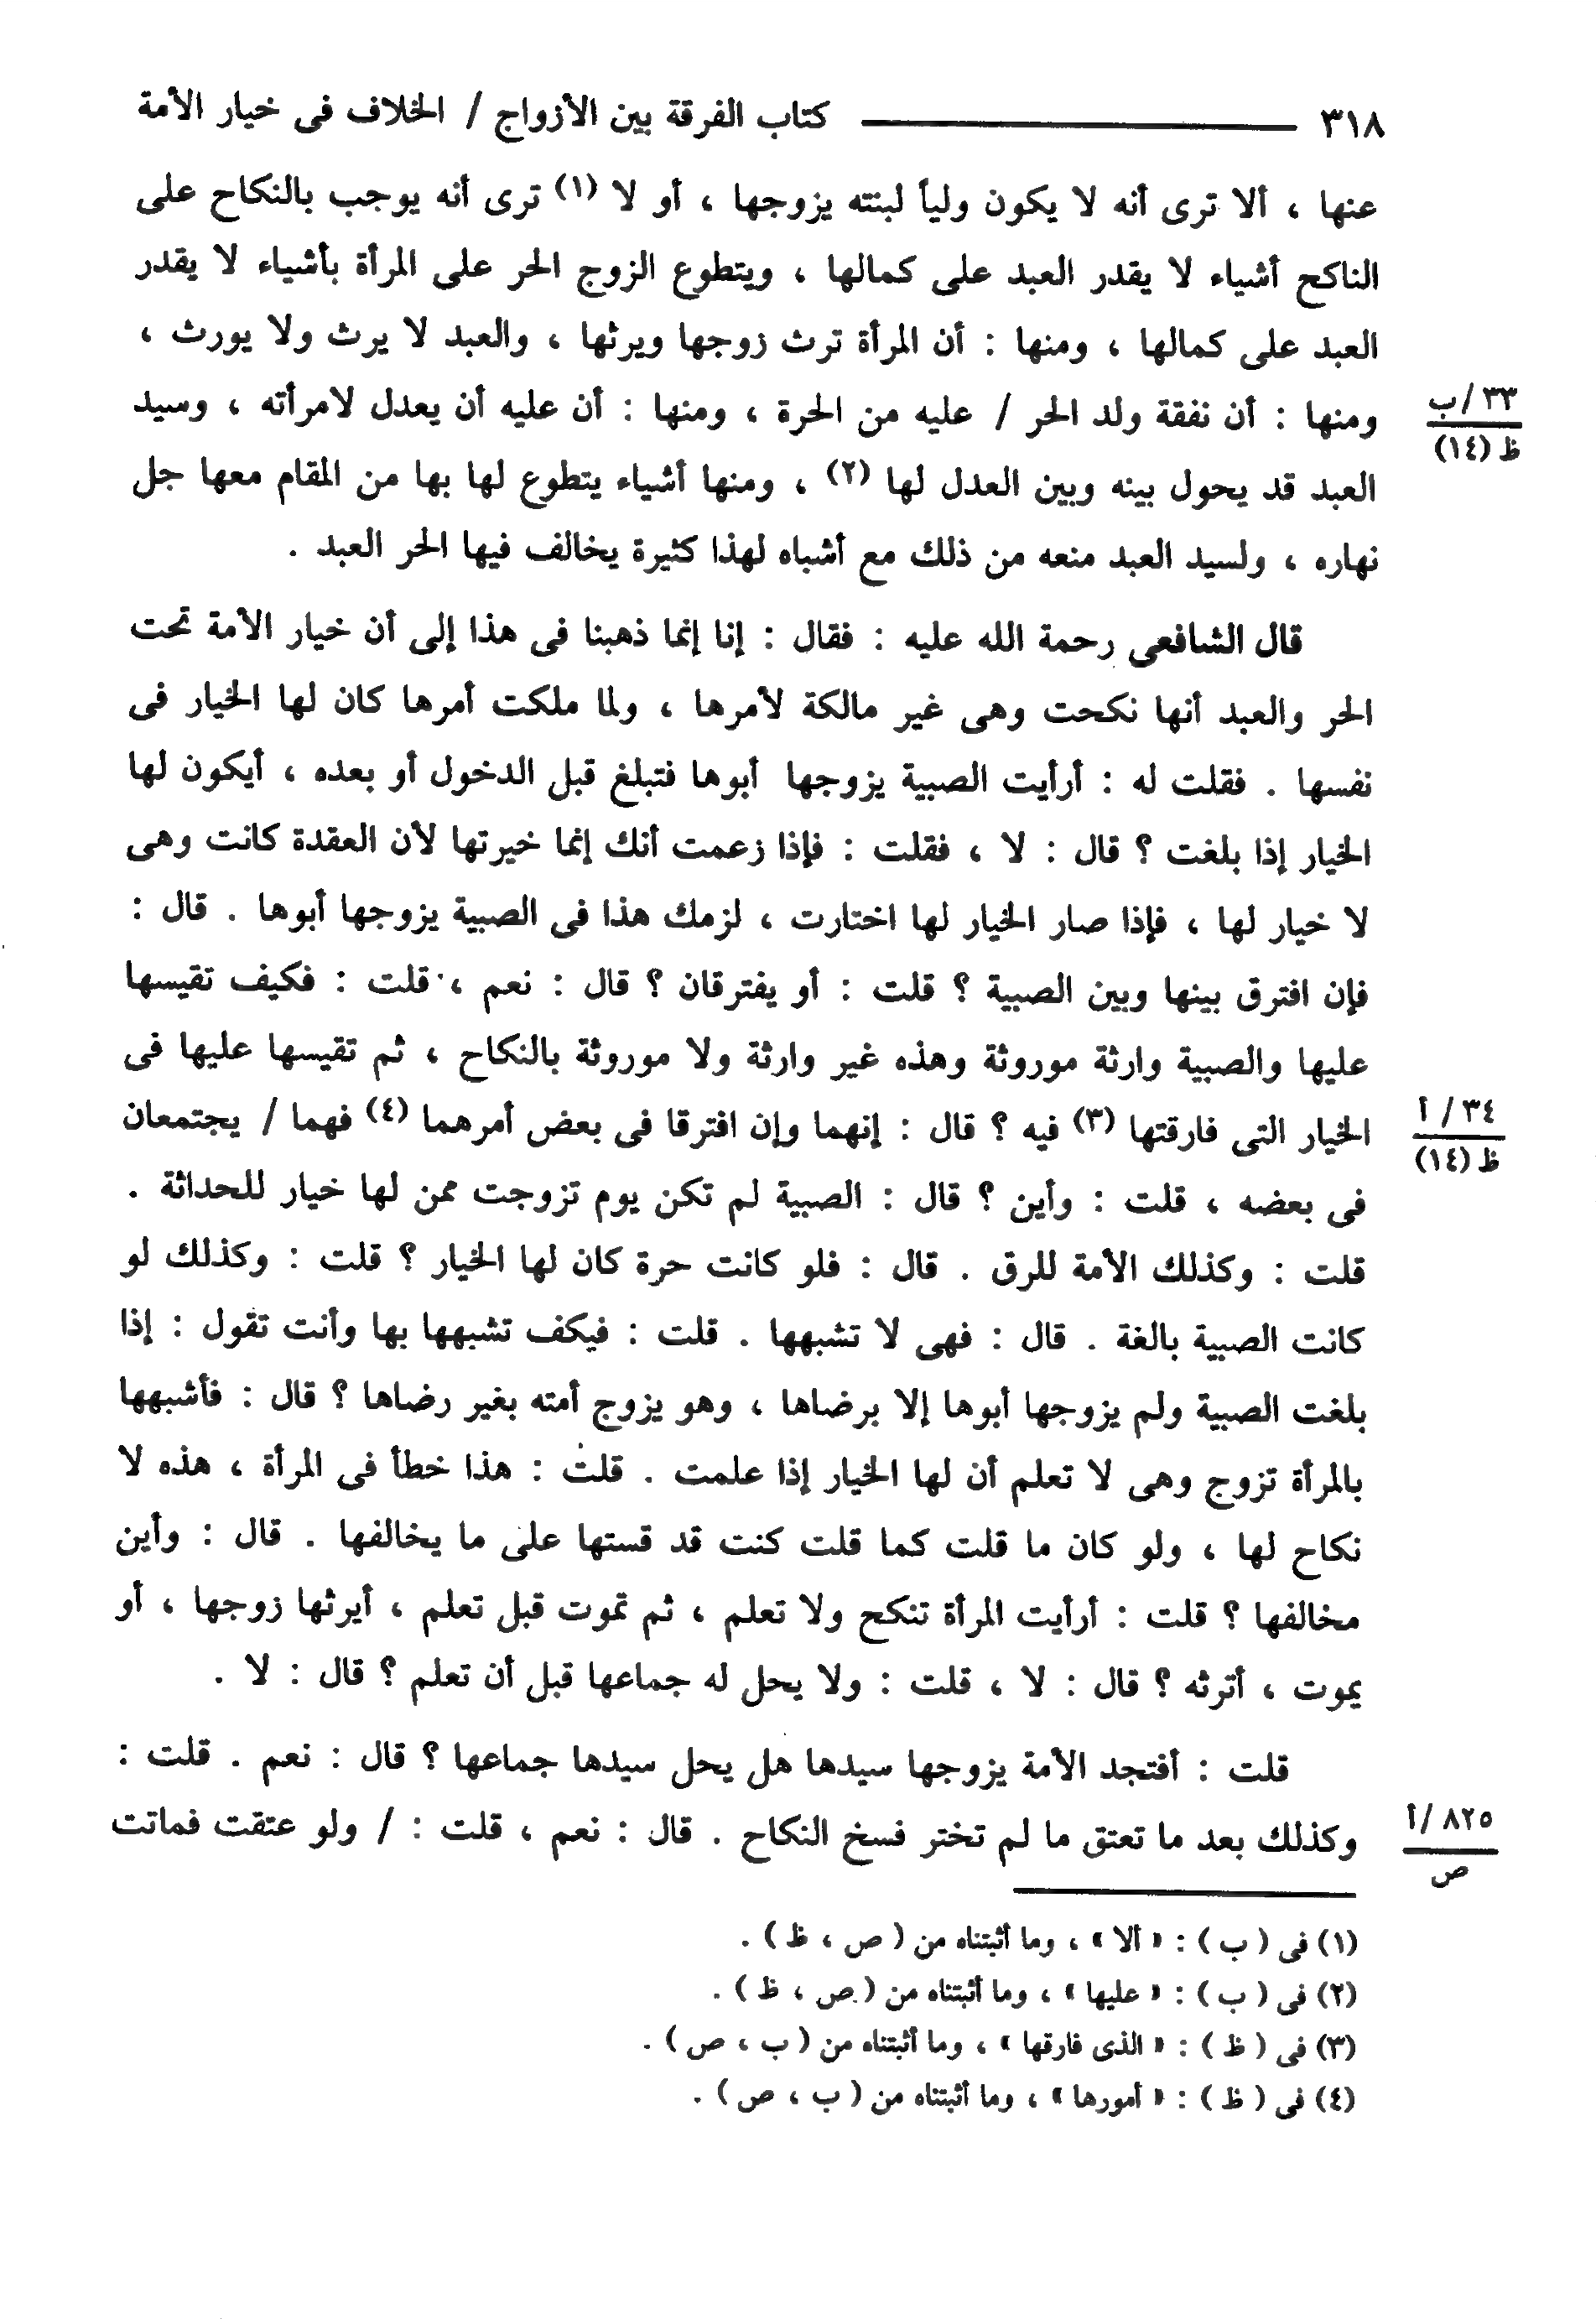 ٣١٨ كتاب الفرقة بين الأزواج / الخلاف فى خيار الأمة
عنها ، ألا ترى أنه لا يكون ولياً لبنته يزوجها ، أو لا (١) ترى أنه يوجب بالنكاح على
الناكح أشياء لا يقدر العبد على كمالها ، ويتطوع الزوج الحر على المرأة بأشياء لا يقدر
العبد على كمالها ، ومنها : أن المرأة ترث زوجها ويرثها ، والعبد لا يرث ولا يورث ،
ومنها : أن نفقة ولد الحر / عليه من الحرة ، ومنها : أن عليه أن يعدل لامرأته ، وسيد
٣٣ /ب
ظ (١٤)
العبد قد يحول بينه وبين العدل لها (٢) ، ومنها أشياء يتطوع لها بها من المقام معها جل
نهاره ، ولسيد العبد منعه من ذلك مع أشباه لهذا كثيرة يخالف فيها الحر العبد .
قال الشافعى رحمة الله عليه : فقال : إنا إنما ذهبنا فى هذا إلى أن خيار الأمة تحت
الحر والعبد أنها نكحت وهى غير مالكة لأمرها ، ولما ملكت أمرها كان لها الخيار فى
نفسها . فقلت له : أرأيت الصبية يزوجها أبوها فتبلغ قبل الدخول أو بعده ، أيكون لها
الخيار إذا بلغت ؟ قال : لا ، فقلت : فإذا زعمت أنك إنما خيرتها لأن العقدة كانت وهى
لا خيار لها ، فإذا صار الخيار لها اختارت ، لزمك هذا فى الصبية يزوجها أبوها . قال :
فإن افترق بينها وبين الصبية ؟ قلت : أو يفترقان ؟ قال : نعم ، قلت : فكيف تقيسها
عليها والصبية وارثة موروثة وهذه غير وارثة ولا موروثة بالنكاح ، ثم تقيسها عليها فى
الخيار التى فارقتها (٣) فيه ؟ قال : إنهما وإن افترقا فى بعض أمرهما (٤) فهما / يجتمعان
٣٤ / أ
ظ (١٤)
فى بعضه ، قلت : وأين ؟ قال : الصبية لم تكن يوم تزوجت ممن لها خيار للحداثة .
قلت : وكذلك الأمة للرق . قال : فلو كانت حرة كان لها الخيار ؟ قلت : وكذلك لو
كانت الصبية بالغة . قال : فهى لا تشبهها . قلت : فيكف تشبهها بها وأنت تقول : إذا
بلغت الصبية ولم يزوجها أبوها إلا برضاها ، وهو يزوج أمته بغير رضاها ؟ قال : فأشبهها
بالمرأة تزوج وهى لا تعلم أن لها الخيار إذا علمت . قلت : هذا خطأ فى المرأة ، هذه لا
نكاح لها ، ولو كان ما قلت كما قلت كنت قد قستها على ما يخالفها . قال : وأين
مخالفها ؟ قلت : أرأيت المرأة تنكح ولا تعلم ، ثم تموت قبل تعلم ، أيرثها زوجها ، أو
يموت ، أترثه ؟ قال : لا ، قلت : ولا يحل له جماعها قبل أن تعلم ؟ قال : لا .
قلت : أفتجد الأمة يزوجها سيدها هل يحل سيدها جماعها ؟ قال : نعم . قلت :
وكذلك بعد ما تعتق ما لم تختر فسخ النكاح . قال : نعم ، قلت : / ولو عتقت فماتت
٨٢٥ /أ
ص
(١) فى ( ب ) : « ألا » ، وما أثبتناه من ( ص ، ظ ) .
(٢) فى ( ب ) : « عليها » ، وما أثبتناه من ( ص ، ظ ) .
(٣) فى ( ظ ) : « الذى فارقها » ، وما أثبتناه من ( ب ، ص ) .
(٤) فى ( ظ ) : « أمورها » ، وما أثبتناه من ( ب ، ص ) .